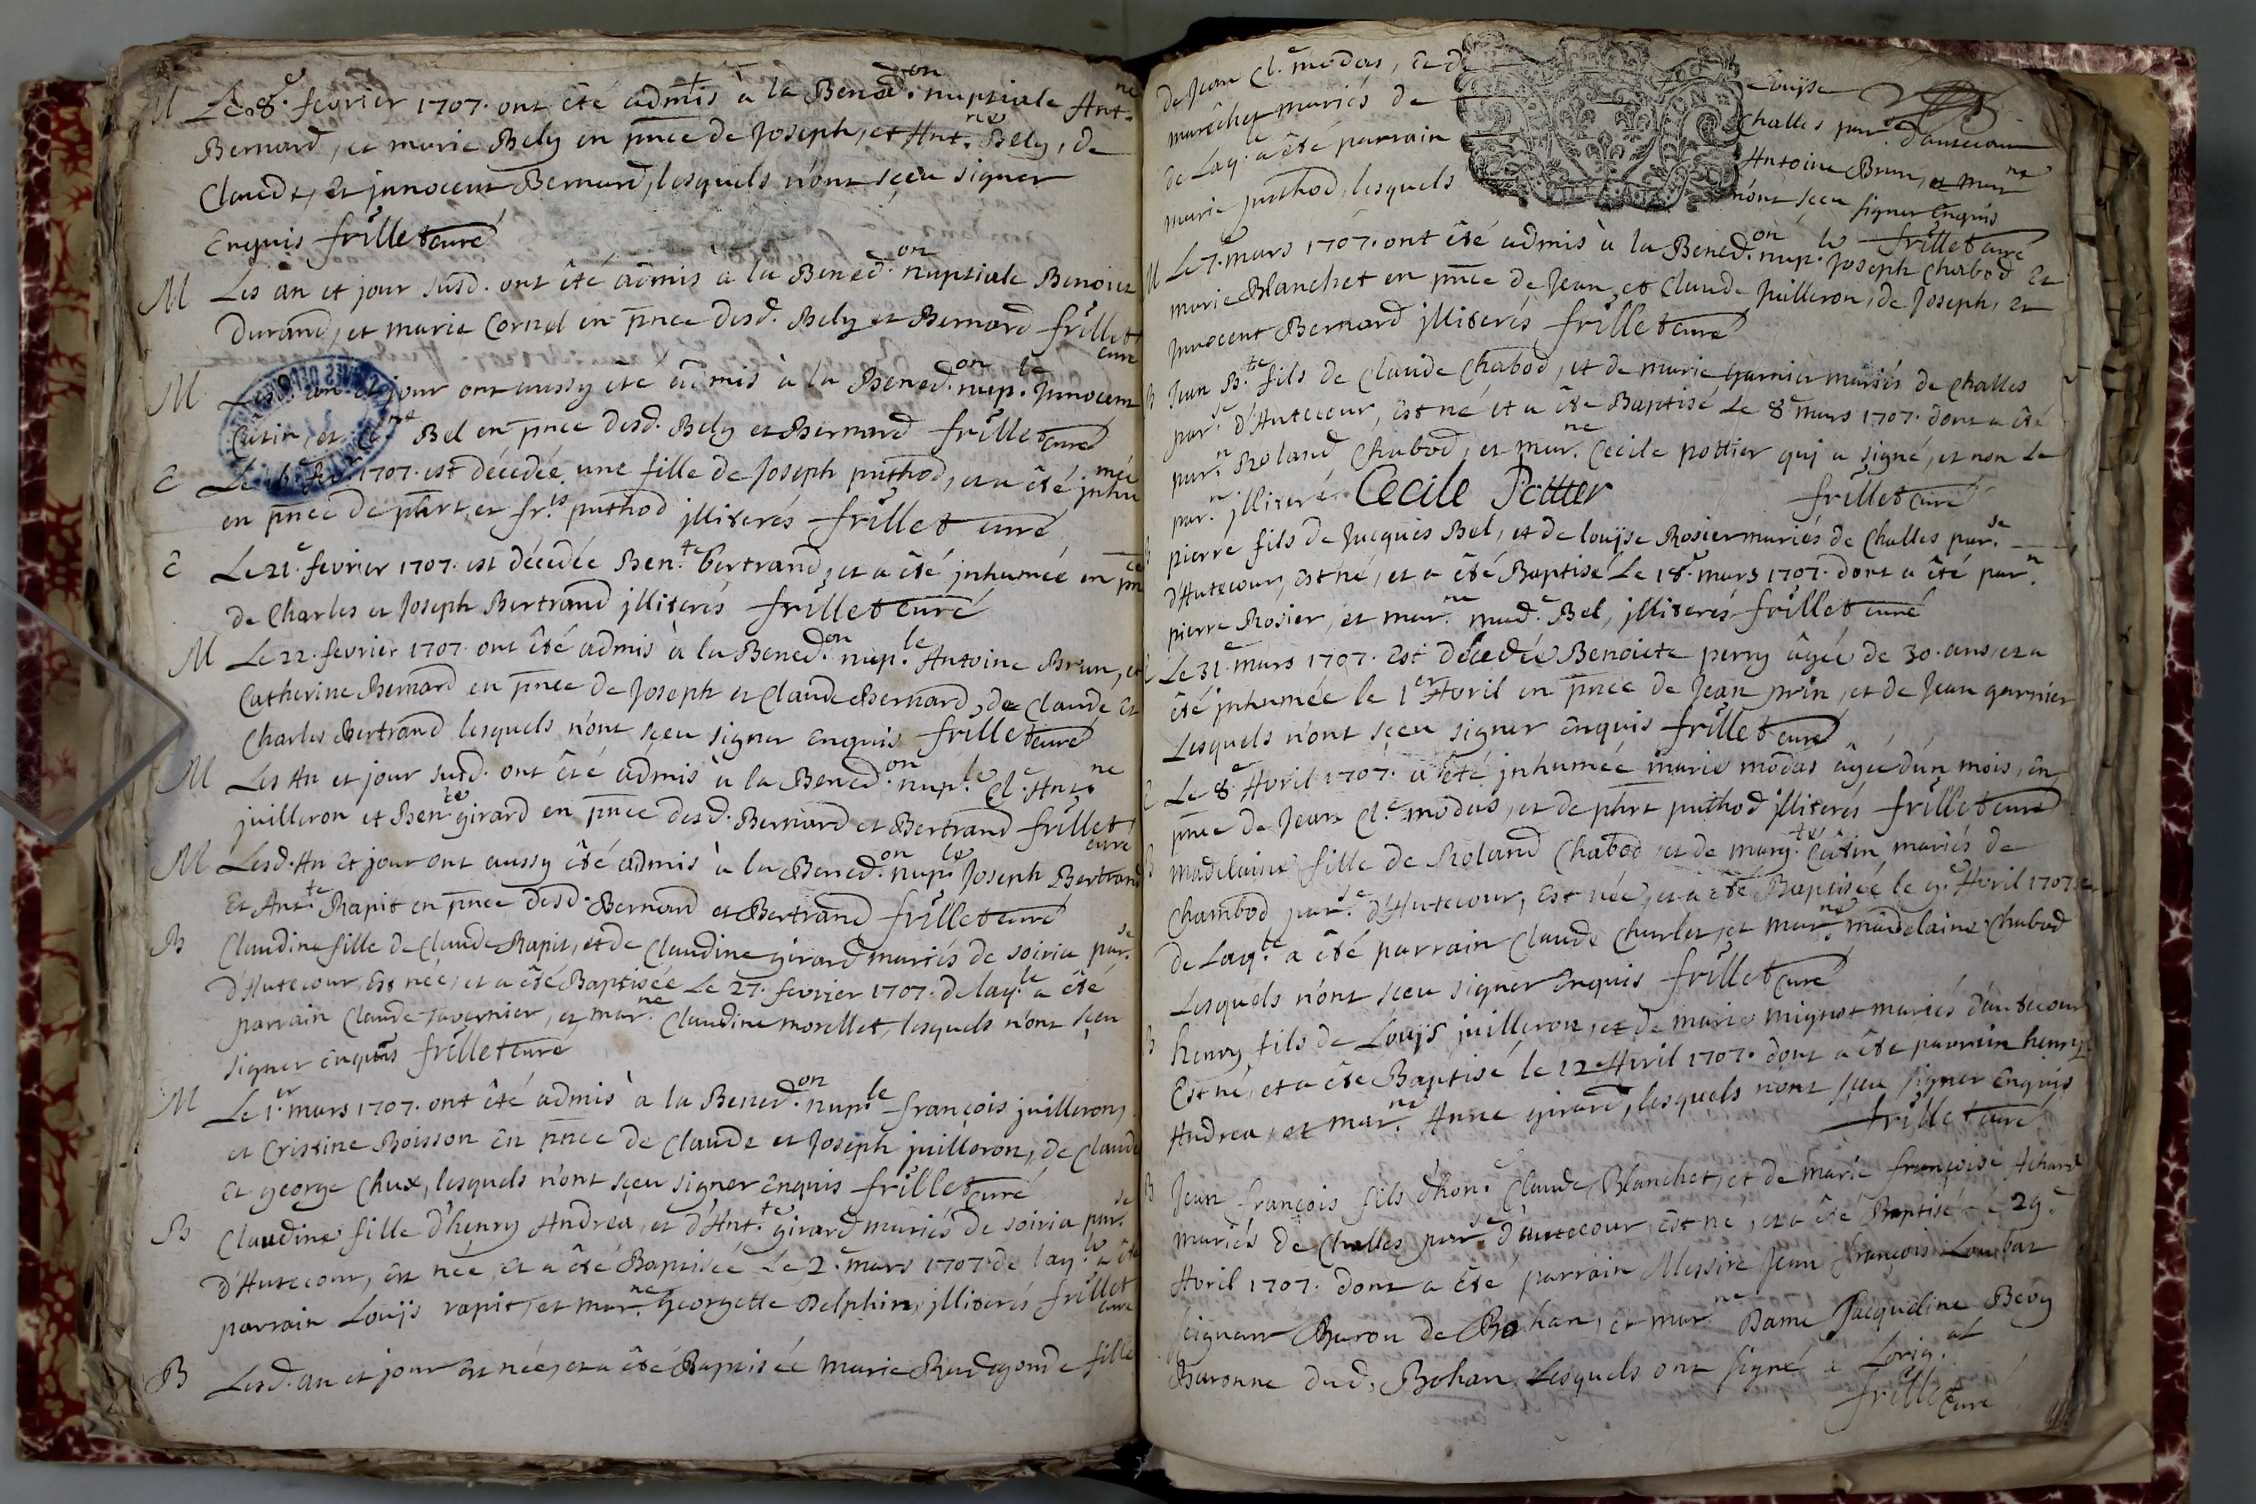 M Le 8.e fevrier 1707. ont été admis à la Bened.on nuptiale Ant.ne
Bernard, et marie Bely en pnce de Joseph, et Ant.ne Bely, de
Claude, et jnnocent Bernard, lesquels n'ont sçeu signer
enquis frillet curé
M Les an et jour susd. ont été admis à la Bened.on nuptiale Benoict
Durand, et marie Cornel en pnce desd. Bely et Bernard frillet
curé
M Lesd. an et jour ont aussy été admis à la Bened.on nup.le Jnnocent
Cutin, et Bel en pnce desd. Bely et Bernard frillet curé
E Le fev. 1707. est décédée une fille de Joseph puthod, et a été jnhumée
en pnce de phrt, et fr.is puthod jlliterés frillet curé
E Le 21.e fevrier 1707. est décedée Ben.te Bertrand, et a été jnhumée en pnce
de Charles et Joseph Bertrand jlliterés frillet curé
M Le 22. fevrier 1707. ont été admis à la Bened.on nup.le Antoine Brun, et
Catherine Bernard en pnce de Joseph et Claude Bernard, de Claude et
Charles Bertrand lesquels n'ont sçeu signer enquis frillet curé
M Les An et jour susd. ont été admis à la Bened.on nup.le Cl.e Ant.ne
juilleron et Ben.te girard en pnce desd. Bernard et Bertrand frillet
curé
M Lesd. An et jour ont aussy été admis à la Bened.on nup.le Joseph Bertrand
Et Ant.te Rapit en pnce desd. Bernard et Bertrand frillet curé
B Claudine fille de Claude Rapit, et de Claudine girard mariés de soiria par.se
d'Hutecour, Est née, et a été Baptisée Le 27. fevrier 1707. de laq.le a été
parrain Claude tavernier, et mar.ne Claudine morellet, lesquels n'ont sçeu
signer enquis frillet curé
M Le 1.er mars 1707. ont été admis à la Bened.on nup.le françois juilleron,
et Cristine Boisson en pnce de Claude et Joseph juilleron, de Claude
et george Chux, lesquels n'ont sçeu signer enquis frillet curé
B Claudine fille d'henry Andrea, et d'Ant.te girard mariés de soiria par.se
d'Hutecour, est née, et a été Baptisée Le 2.e mars 1707. de laq.le a été
parrain Louijs rapit, et mar.ne Georgette Delphin, jlliterés frillet
curé
B Lesd. an et jour est née, et a été Baptisée marie Radegonde fille
de Jean Cl.e modas, et de Louijse
maréchet mariés de Challes par.se d'autecour
de Laq.le a été parrain Antoine Brun, et mar.ne
marie puthod, lesquels n'ont sçeu signer enquis
frillet curé
M Le 7.e mars 1707. ont été admis à la Bened.on nup.le Joseph Chabod et
marie Blanchet en pnce de Jean, et Claude Juilleron, de Joseph, et
Jnnocent Bernard jlliterés frillet curé
B Jean B.te fils de Claude Chabod, et de marie garnier mariés de Challes
par.se d'Hutecour, est né et a été Baptisé Le 8.e mars 1707. dont a été
par.n Roland Chabod, et mar.ne Cecile pottier qui a signé, et non le
par.n jlliteré. Cecile Pottier frillet curé
B pierre fils de Jacques Bel, et de louijse Rosier mariés de Challes par.se
d'Hutecour, est né, et a été Baptisé Le 18.e mars 1707. dont a été par.n
pierre Rosier, et mar.ne mad.e Bel, jlliterés frillet curé
E Le 31.e mars 1707. est décedée Benoicte perry âgée de 30. ans, et a
été jnhumée le 1.er Avril en pnce de Jean prin, et de Jean garnier
Lesquels n'ont sçeu signer enquis frillet curé
E Le 8.e Avril 1707. a été jnhumée marie modas âgée d'un mois, en
pnce de Jean Cl.e modas, et de phrt puthod jlliterés frillet curé
B madelaine fille de Roland Chabod et de marg.te Cutin mariés de
Chambod par.se d'Hutecour, est née, et a été Baptisée le 9.e Avril 1707.
de Laq.le a été parrain Claude Charlet, et mar.ne madelaine Chabod
Lesquels n'ont sçeu signer enquis frillet curé
B henry fils de Louijs juilleron, et de marie mignot mariés d'autecour
Est né, et a été Baptisé le 12. Avril 1707. dont a été parrain henry
Andrea, et mar.ne Anne girard, lesquels n'ont sçeu signer enquis
frillet curé
B Jean françois fils d'hon.e Claude Blanchet, et de marie françoise Achard
mariés de Challes par.se d'autecour, est né, et a été Baptisé le 29.e
Avril 1707. dont a été parrain Messire Jean françois Loubat
seigneur Baron de Bohan, et mar.ne Dame Jacqueline Beoy
Baronne dud. Bohan, Lesquels ont signé a Lorig.al
frillet curé